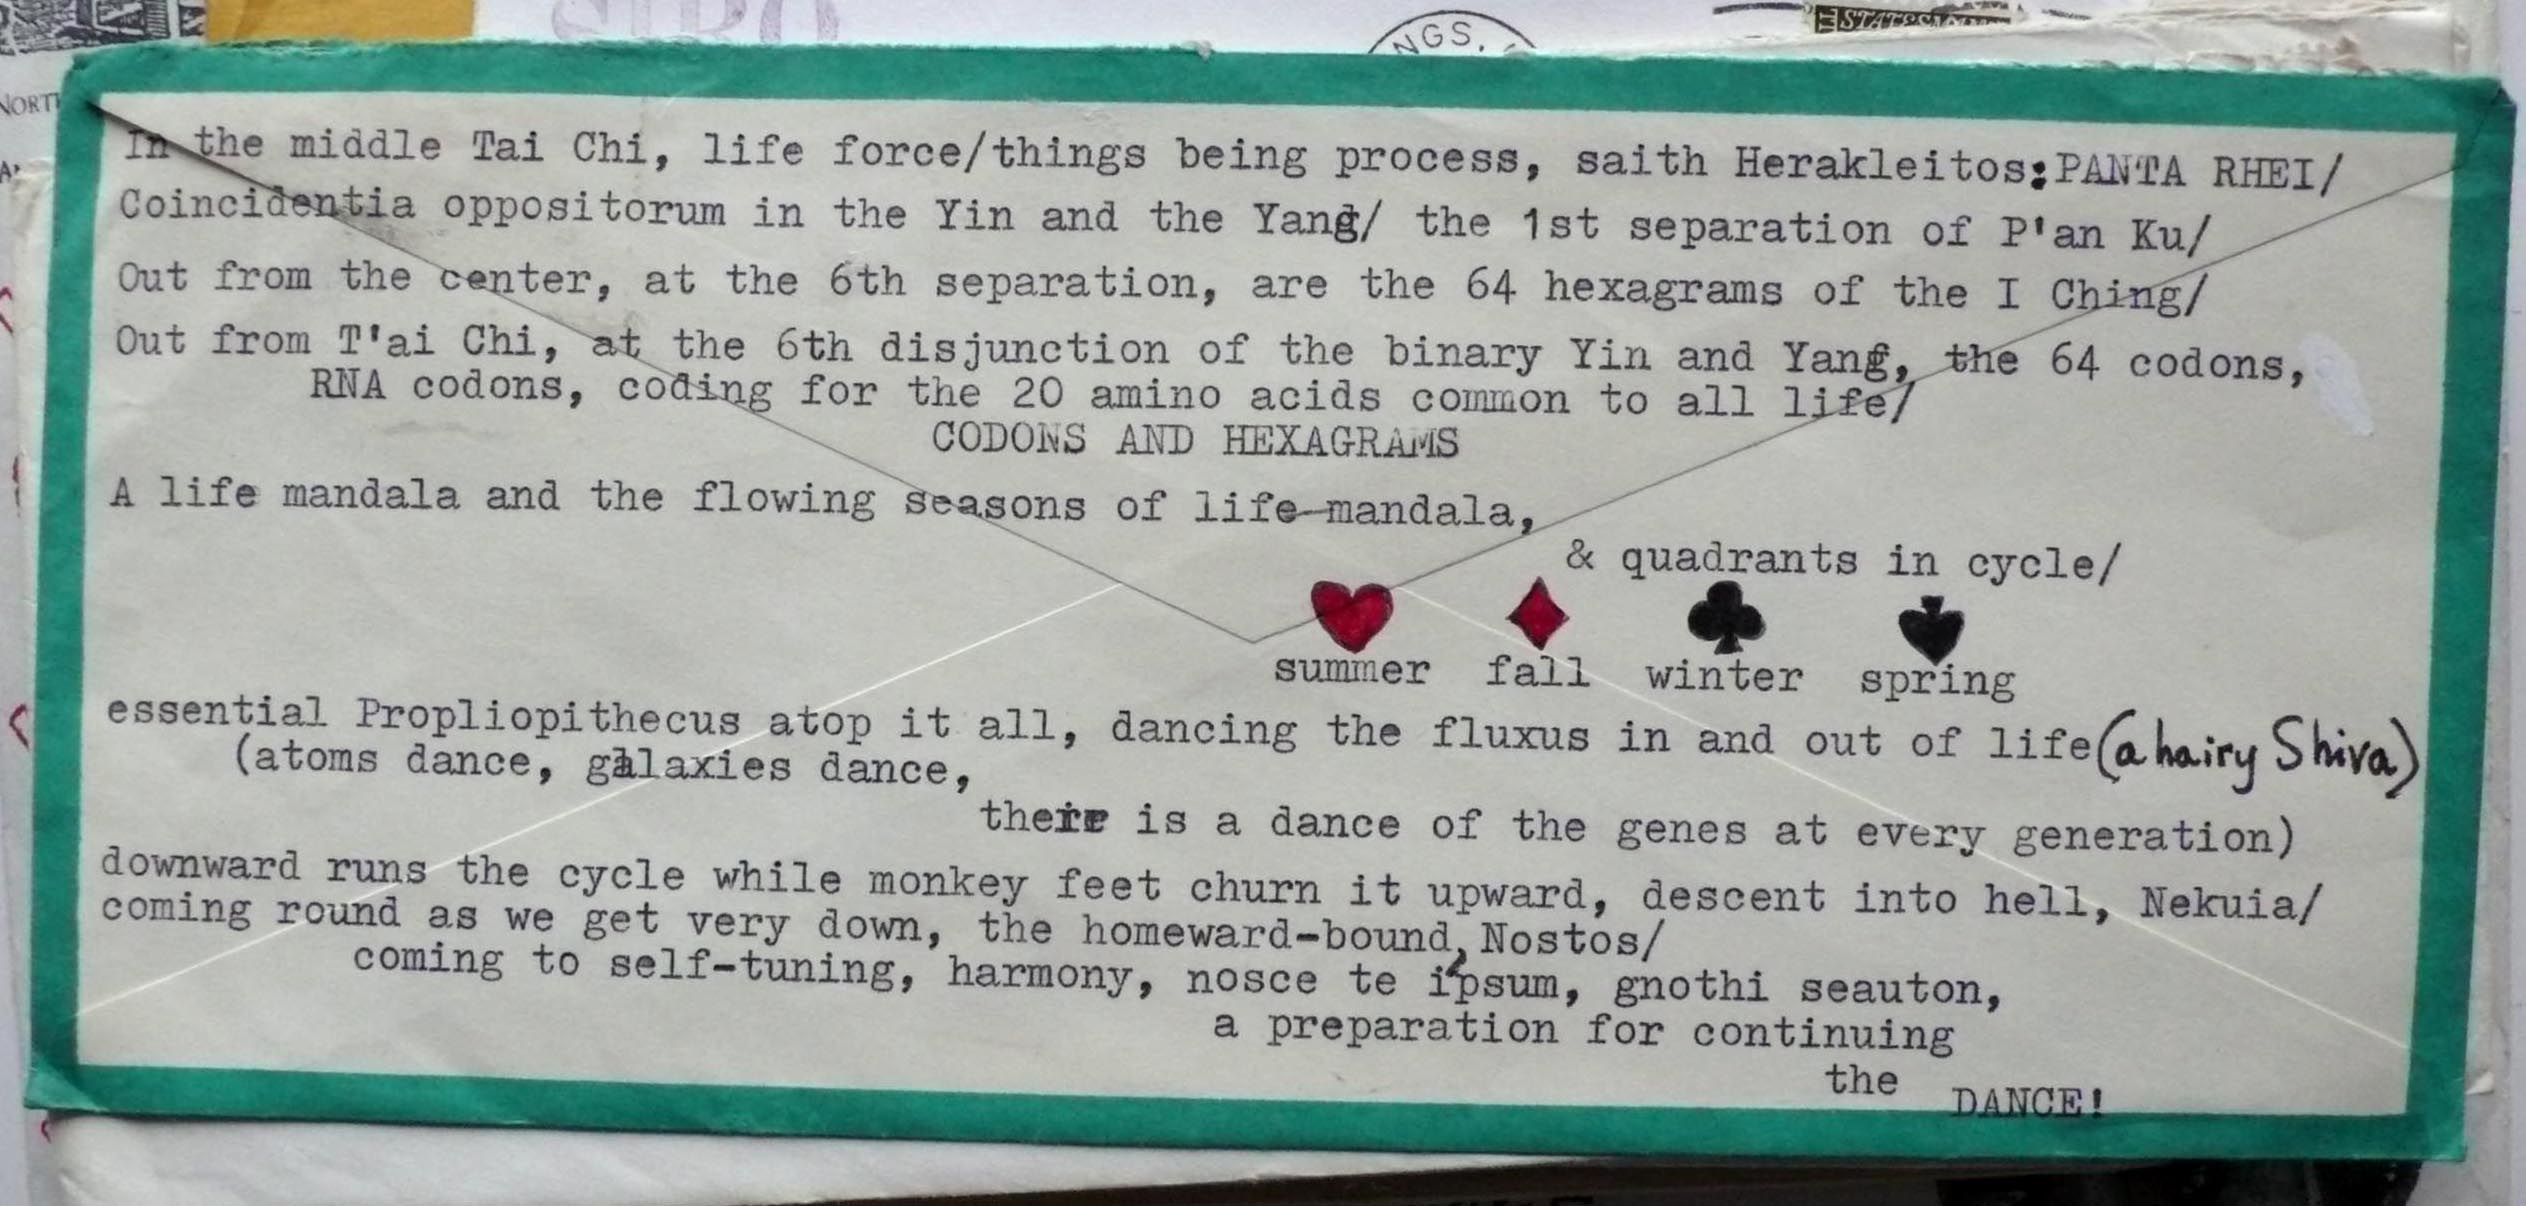 SIRO
NGS.
STATESMAN
NORTH
In the middle Tai Chi, life force/things being process, saith Herakleitos:PANTA RHEI/
Coincidentia oppositorum in the Yin and the Yang/ the 1st separation of P'an Ku/
Out from the center, at the 6th separation, are the 64 hexagrams of the I Ching/
Out from T'ai Chi, at the 6th disjunction of the binary Yin and Yang, the 64 codons,
RNA codons, coding for the 20 amino acids common to all life/
CODONS AND HEXAGRAMS
A life mandala and the flowing seasons of life-mandala,
& quadrants in cycle/
♥ ♦ ♣ ♠
summer fall winter spring
essential Propliopithecus atop it all, dancing the fluxus in and out of life(a hairy Shiva)
(atoms dance, galaxies dance,
there is a dance of the genes at every generation)
downward runs the cycle while monkey feet churn it upward, descent into hell, Nekuia/
coming round as we get very down, the homeward-bound, Nostos/
coming to self-tuning, harmony, nosce te ipsum, gnothi seauton,
a preparation for continuing
the
DANCE!